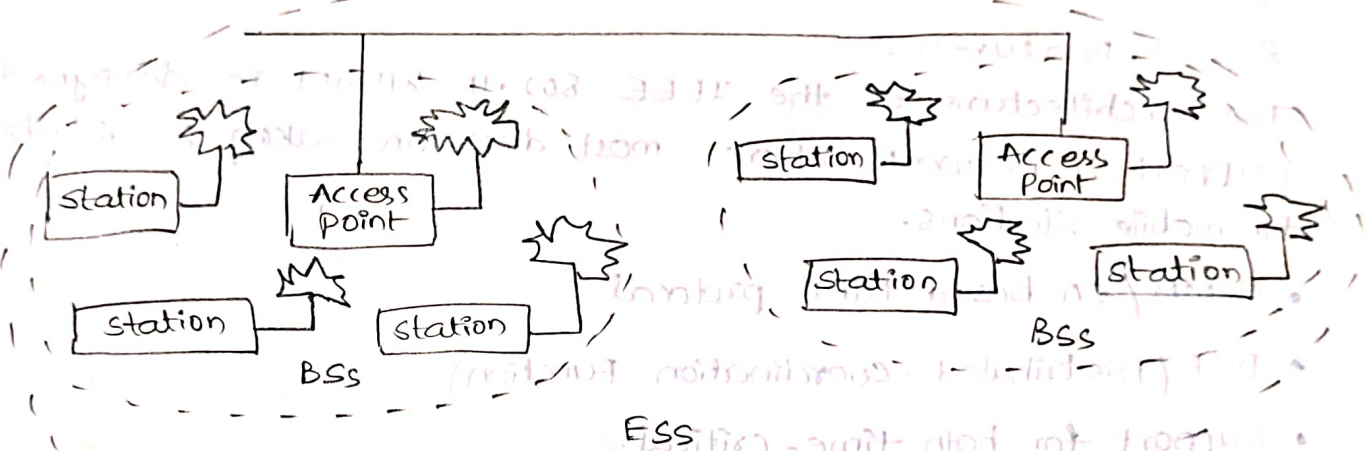 Station
Access
Point
Station
Station
BSS
Station
Access
Point
Station
Station
BSS
ESS